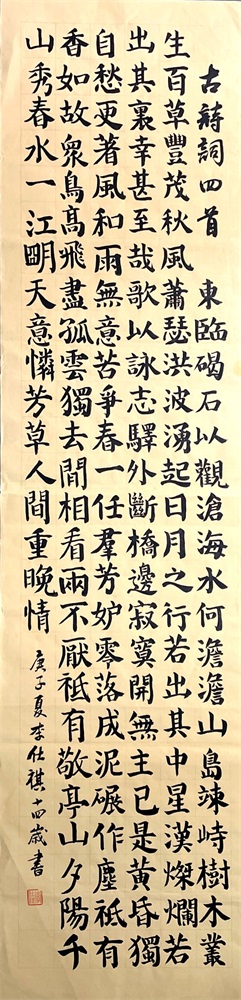 古詩詞四首 東臨碣石以觀滄海水何澹澹山島竦峙樹木叢
生百草豐茂秋風蕭瑟洪波湧起日月之行若出其中星漢燦爛若
出其裏幸甚至哉歌以詠志驛外斷橋邊寂寞開無主已是黃昏獨
自愁更著風和雨無意苦爭春一任羣芳妒零落成泥碾作塵祗有
香如故眾鳥高飛盡孤雲獨去閒相看兩不厭祗有敬亭山夕陽千
山秀春水一江明天意憐芳草人間重晚情
庚子夏李仕祺十四歲書